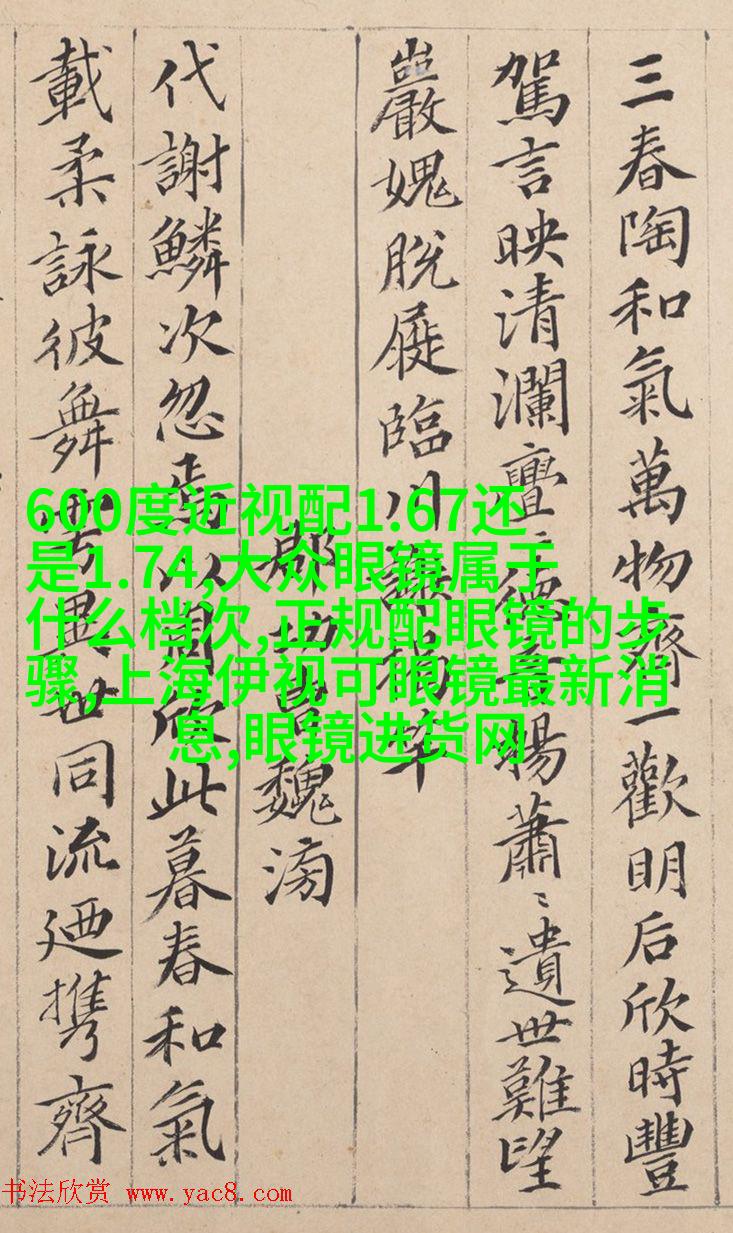 三春陶和氣萬物齊一歡明后欣時豐
駕言映清瀾亹〻德音暢蕭〻遺世難望
巖愧脫屣臨川謝揭竿
郡功曹魏滂
代謝鱗次忽焉以周欣此暮春和氣
載柔詠彼舞雩異世同流廼携齊
600度近视配1.67还
是1.74,大众眼镜属于
什么档次,正规配眼镜的步
骤,上海伊视可眼镜最新消
息,眼镜进货网
书法欣赏 www.yac8.com